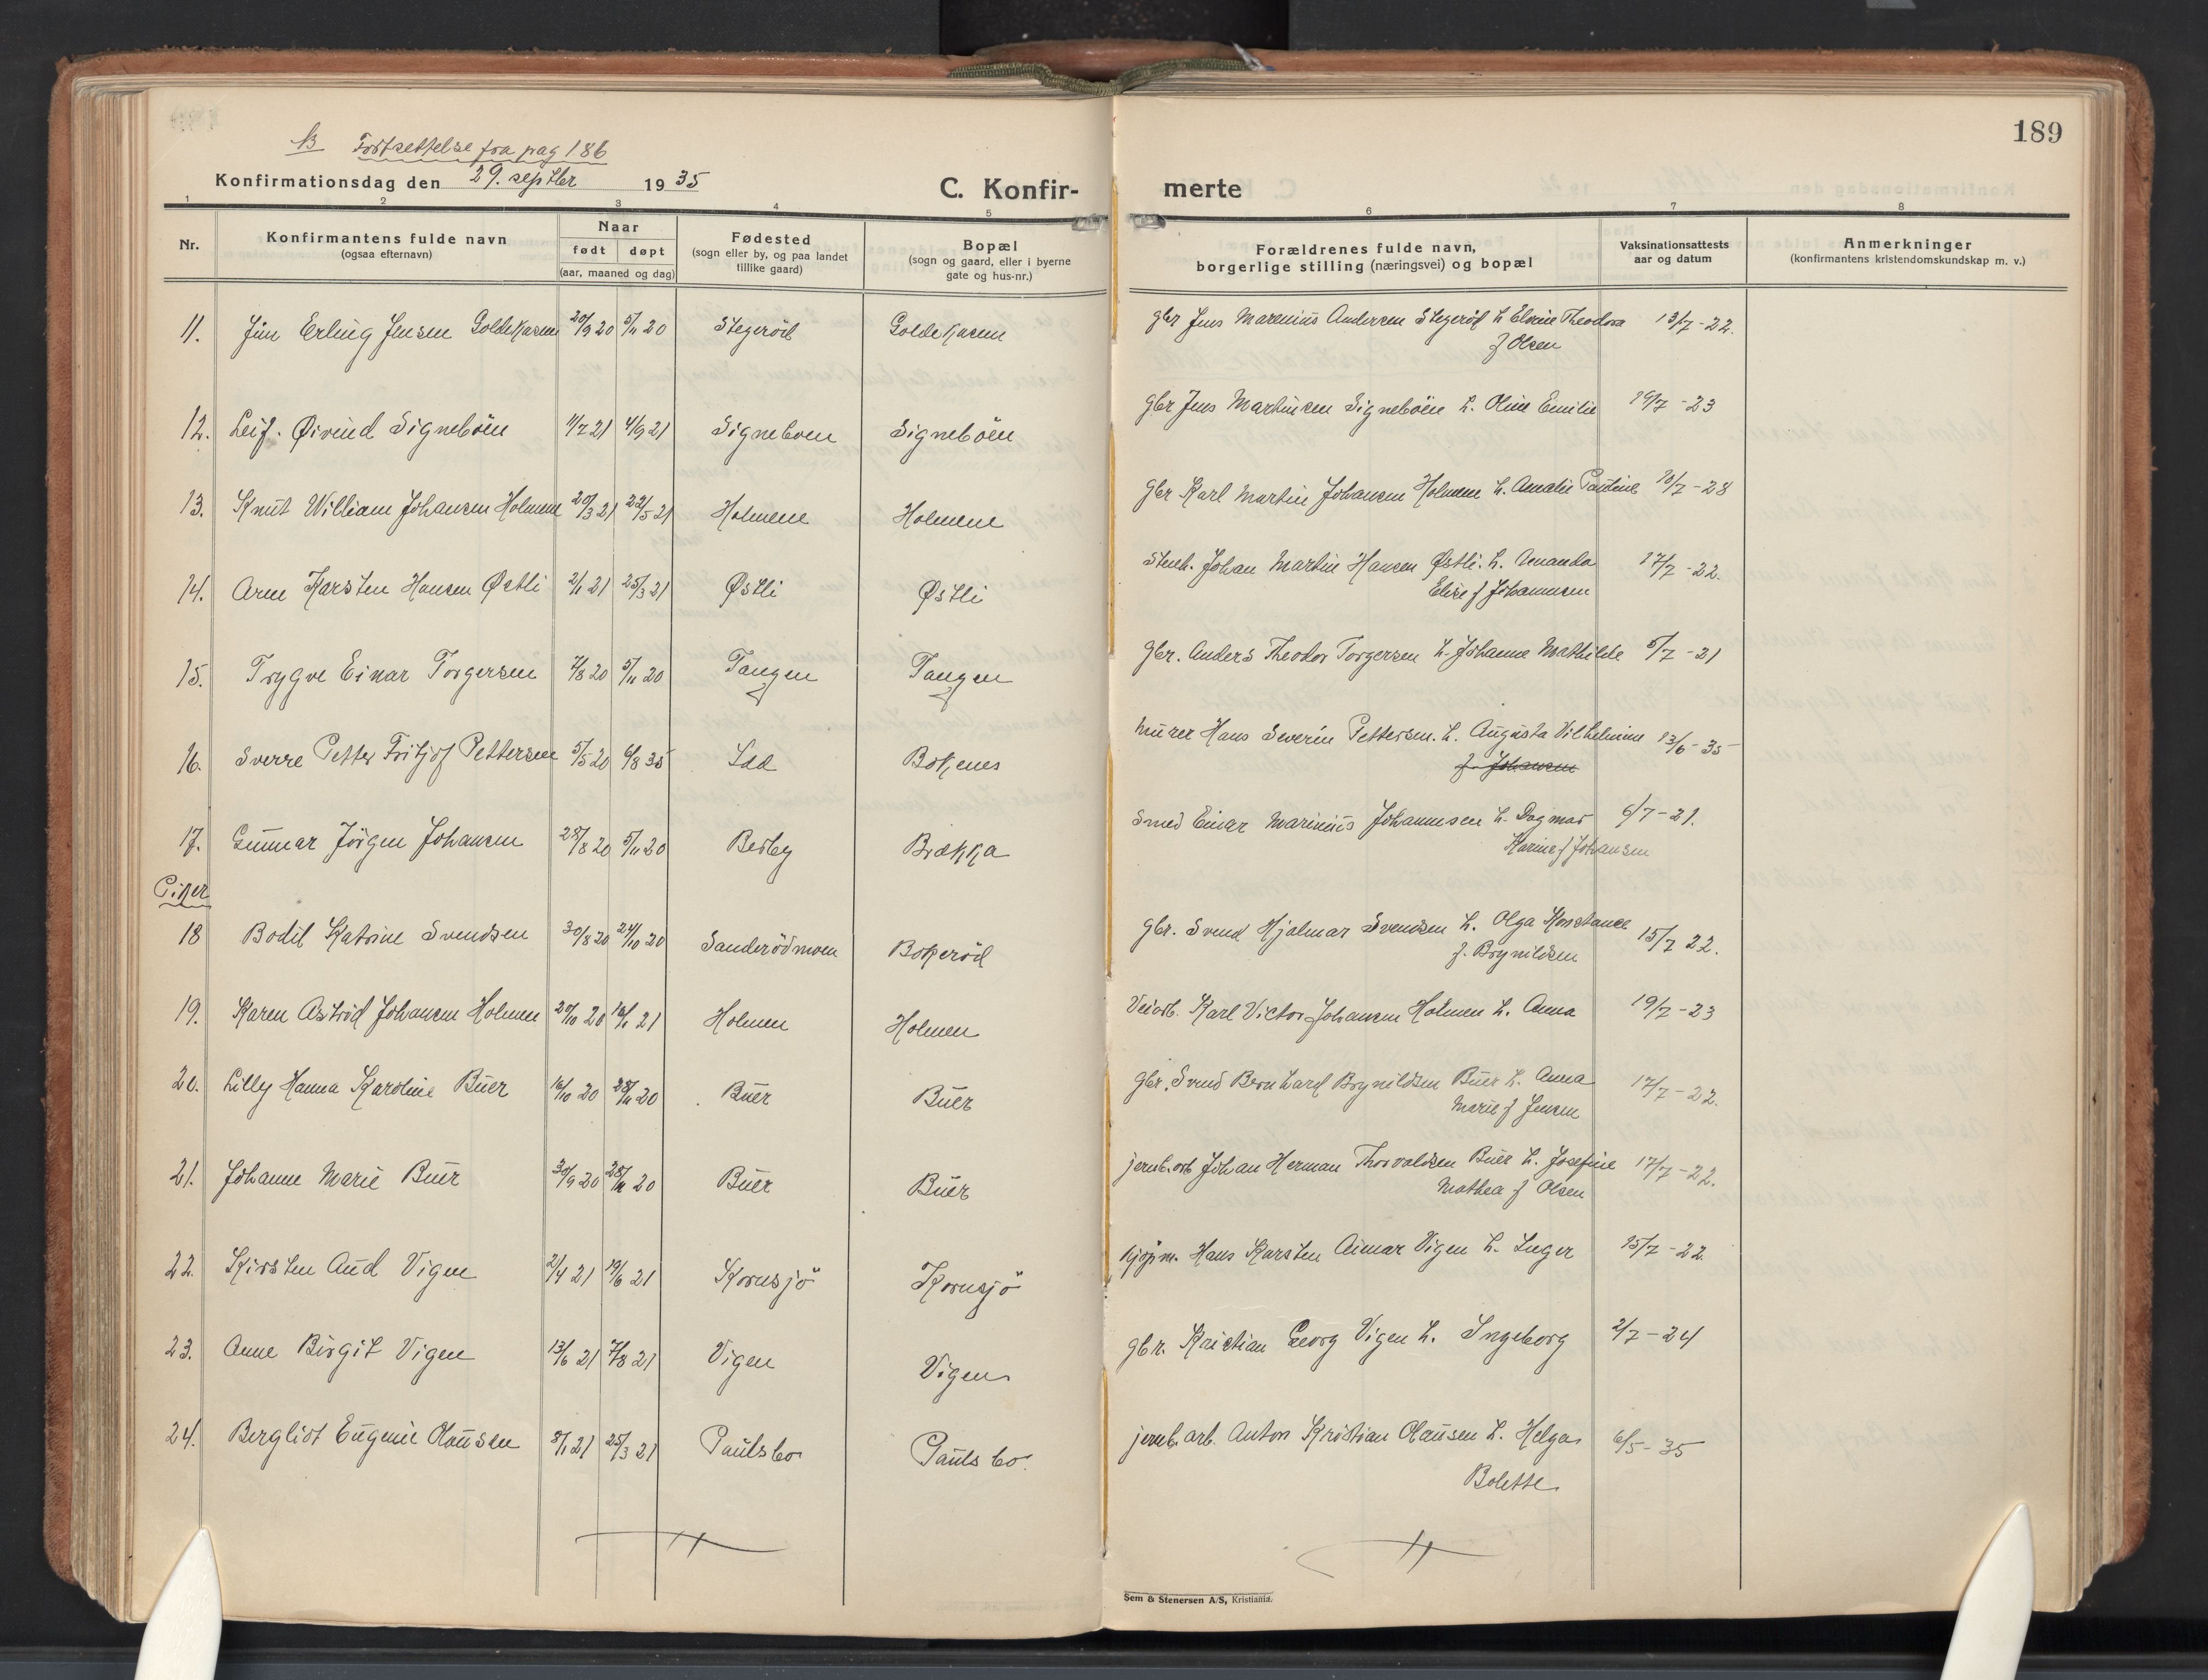 189
B Fortsettelse fra pag 186
Konfirmationsdag den 29. septbr 1935
C. Konfir-
merte
1 2 3 4 5 6 7 8
Nr.
Konfirmantens fulde navn
(ogsaa efternavn)
Naar
født døpt
(aar, maaned og dag)
Fødested
(sogn eller by, og paa landet
tillike gaard)
Bopæl
(sogn og gaard, eller i byerne
gate og hus-nr.)
Forældrenes fulde navn,
borgerlige stilling (næringsvei) og bopæl
Vaksinationsattests
aar og datum
Anmerkninger
(konfirmantens kristendomskundskap m. v.)
11. Jim Erling Jensen Goldekasen 20/9 20 5/11 20 Stegeröd Goldekasen gbr Jens Marenius Andersen Stegeröd h. Elvine Theodora 13/7-22.
f Olsen
12. Leif Øivind Signeböen 11/7 21 4/9 21 Signeboen Signeböen gbr Jens Martinsen Signeböen h. Oline Emilie 19/7-23
13. Knut William Johansen Holmene 20/3 21 22/5 21 Holmene Holmene gbr Karl Martin Johansen Holmene h. Amalie Pauline 10/7-28
14. Arne Karsten Hansen Østli 2/1 21 25/3 21 Østli Østli Stenh. Johan Martin Hansen Østli. h. Amanda 17/7-22.
Elise f Johannesen
15. Trygve Einar Torgersen 7/8 20 5/11 20 Tangen Tangen gbr. Anders Theodor Torgersen h. Johanne Mathilde 5/7-21
16. Sverre Petter Fritjof Pettersen 5/5 20 6/8 35 Idd Bokenes Murer Hans Severin Pettersen. h. Augusta Vilhelmine 13/6-35
f. Johansen
17. Gunnar Jörgen Johansen 28/8 20 5/11 20 Berby Brækka Smed Einar Marinius Johannesen h. Dagmar 6/7-21.
Karine f Johansen
Piker
18 Bodil Katrine Svendsen 30/8 20 24/10 20 Sanderödmoen Bokeröd gbr. Svend Hjalmar Svendsen h. Olga Konstance 15/7 22.
f. Brynildsen
19. Karen Astrid Johansen Holmen 20/10 20 16/1 21 Holmen Holmen Veiarb. Karl Victor Johansen Holmen h. Anna 19/7-23
20. Lilly Hanna Karoline Buer 16/10 20 28/11 20 Buer Buer gbr. Svend Bernhard Brynildsen Buer h. Anna 17/7-22.
Marie f Jensen
21. Johanne Marie Buer 30/9 20 28/11 20 Buer Buer jernb.arb Johan Herman Thorvaldsen Buer h. Josefine 17/7-22.
Mathea f Olsen
22. Kirsten Aud Vigen 2/4 21 19/6 21 Kornsjö Kornsjö kjöpm. Hans Karsten Aimar Vigen h. Inger 15/7-22.
23. Anne Birgit Vigen 13/6 21 7/8 21 Vigen Vigen gbr. Kristian Georg Vigen h. Ingeborg 2/7-24
24. Bergliot Eugenie Olausen 8/1 21 25/3 21 Paulsbo Paulsbo. jernb.arb. Anton Kristian Olausen h. Helga 6/5-35
Bolette.
Sem & Stenersen A/S, Kristiania.